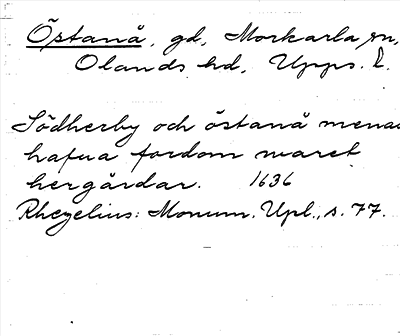 Östanå, gd, Morkarla sn,
Olands hd, Upps. l.
Södherby och östanå menas
hafua fordom waret
hergårdar. 1636
Rhezelius: Monum. Upl., s. 77.